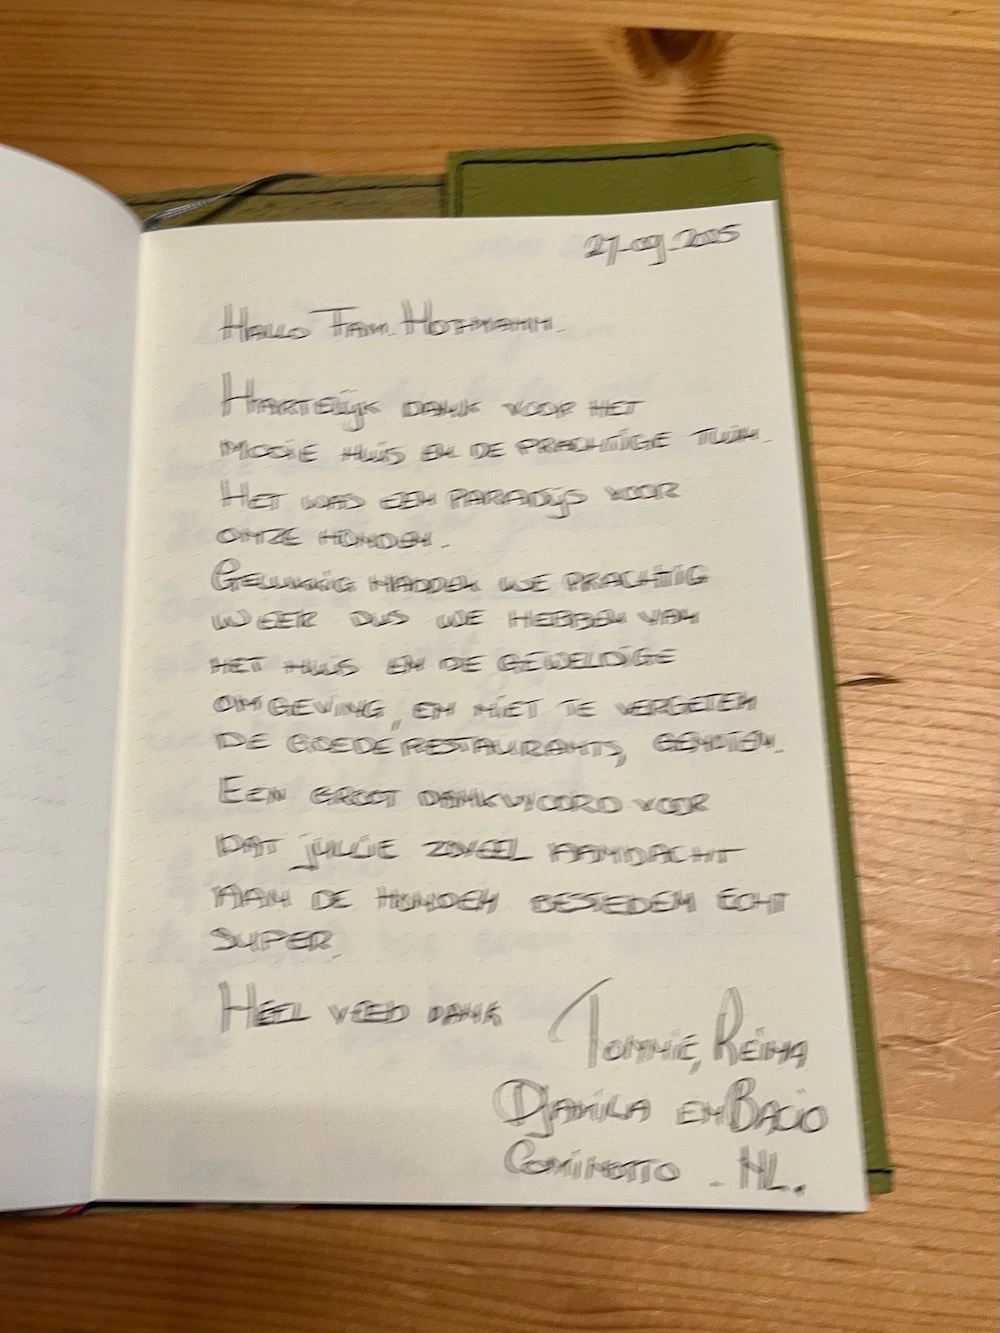 27-09-2025
Hallo Fam. Hofmann.
Hartelijk dank voor het
mooie huis en de prachtige tuin.
Het was een paradijs voor
onze honden.
Gelukkig hadden we prachtig
weer dus we hebben van
het huis en de geweldige
omgeving, en niet te vergeten
de goede restaurants, genoten.
Een groot dankwoord voor
dat jullie zoveel aandacht
aan de honden besteden echt
super.
Heel veel dank Tommie, Reina
Djamila en Bacio
Cominotto - NL.